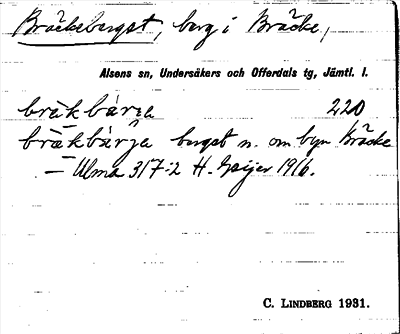 Bräckeberget, berg i Bräcke,
Alsens sn, Undersåkers och Offerdals tg, Jämtl. l.
bräkbärja 220
bräkbärja berget n. om byn Bräcke
— Ulma 317:2 H. Geijer 1916.
C. LINDBERG 1931.